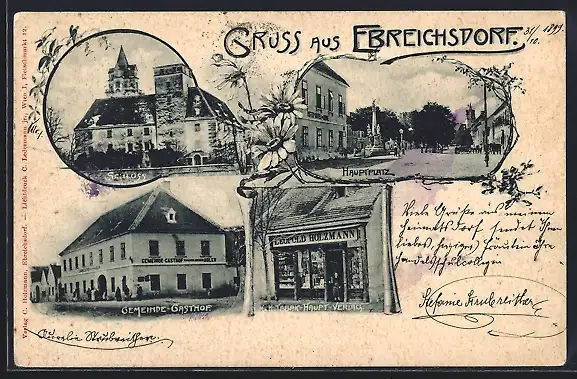 GRUSS AUS EBREICHSDORF.
31/10. 1899
SCHLOSS
HAUPTPLATZ
GEMEINDE-GASTHOF
GEMEINDE-GASTHOF.
LEOPOLD HOLZMANN
K.K. TABAK-HAUPT-VERLAG
Viele Grüße aus meinem
Heimatsdorf sendet Ihnen
liebes, herziges Fräulein Ihre
Handelsschulcollegin
Stefanie Straubreither
Aurelie Straubreither
Verlag C. Holzmann, Ebreichsdorf. — Lichtdruck C. Ledermann jr., Wien I, Fleischmarkt 12.